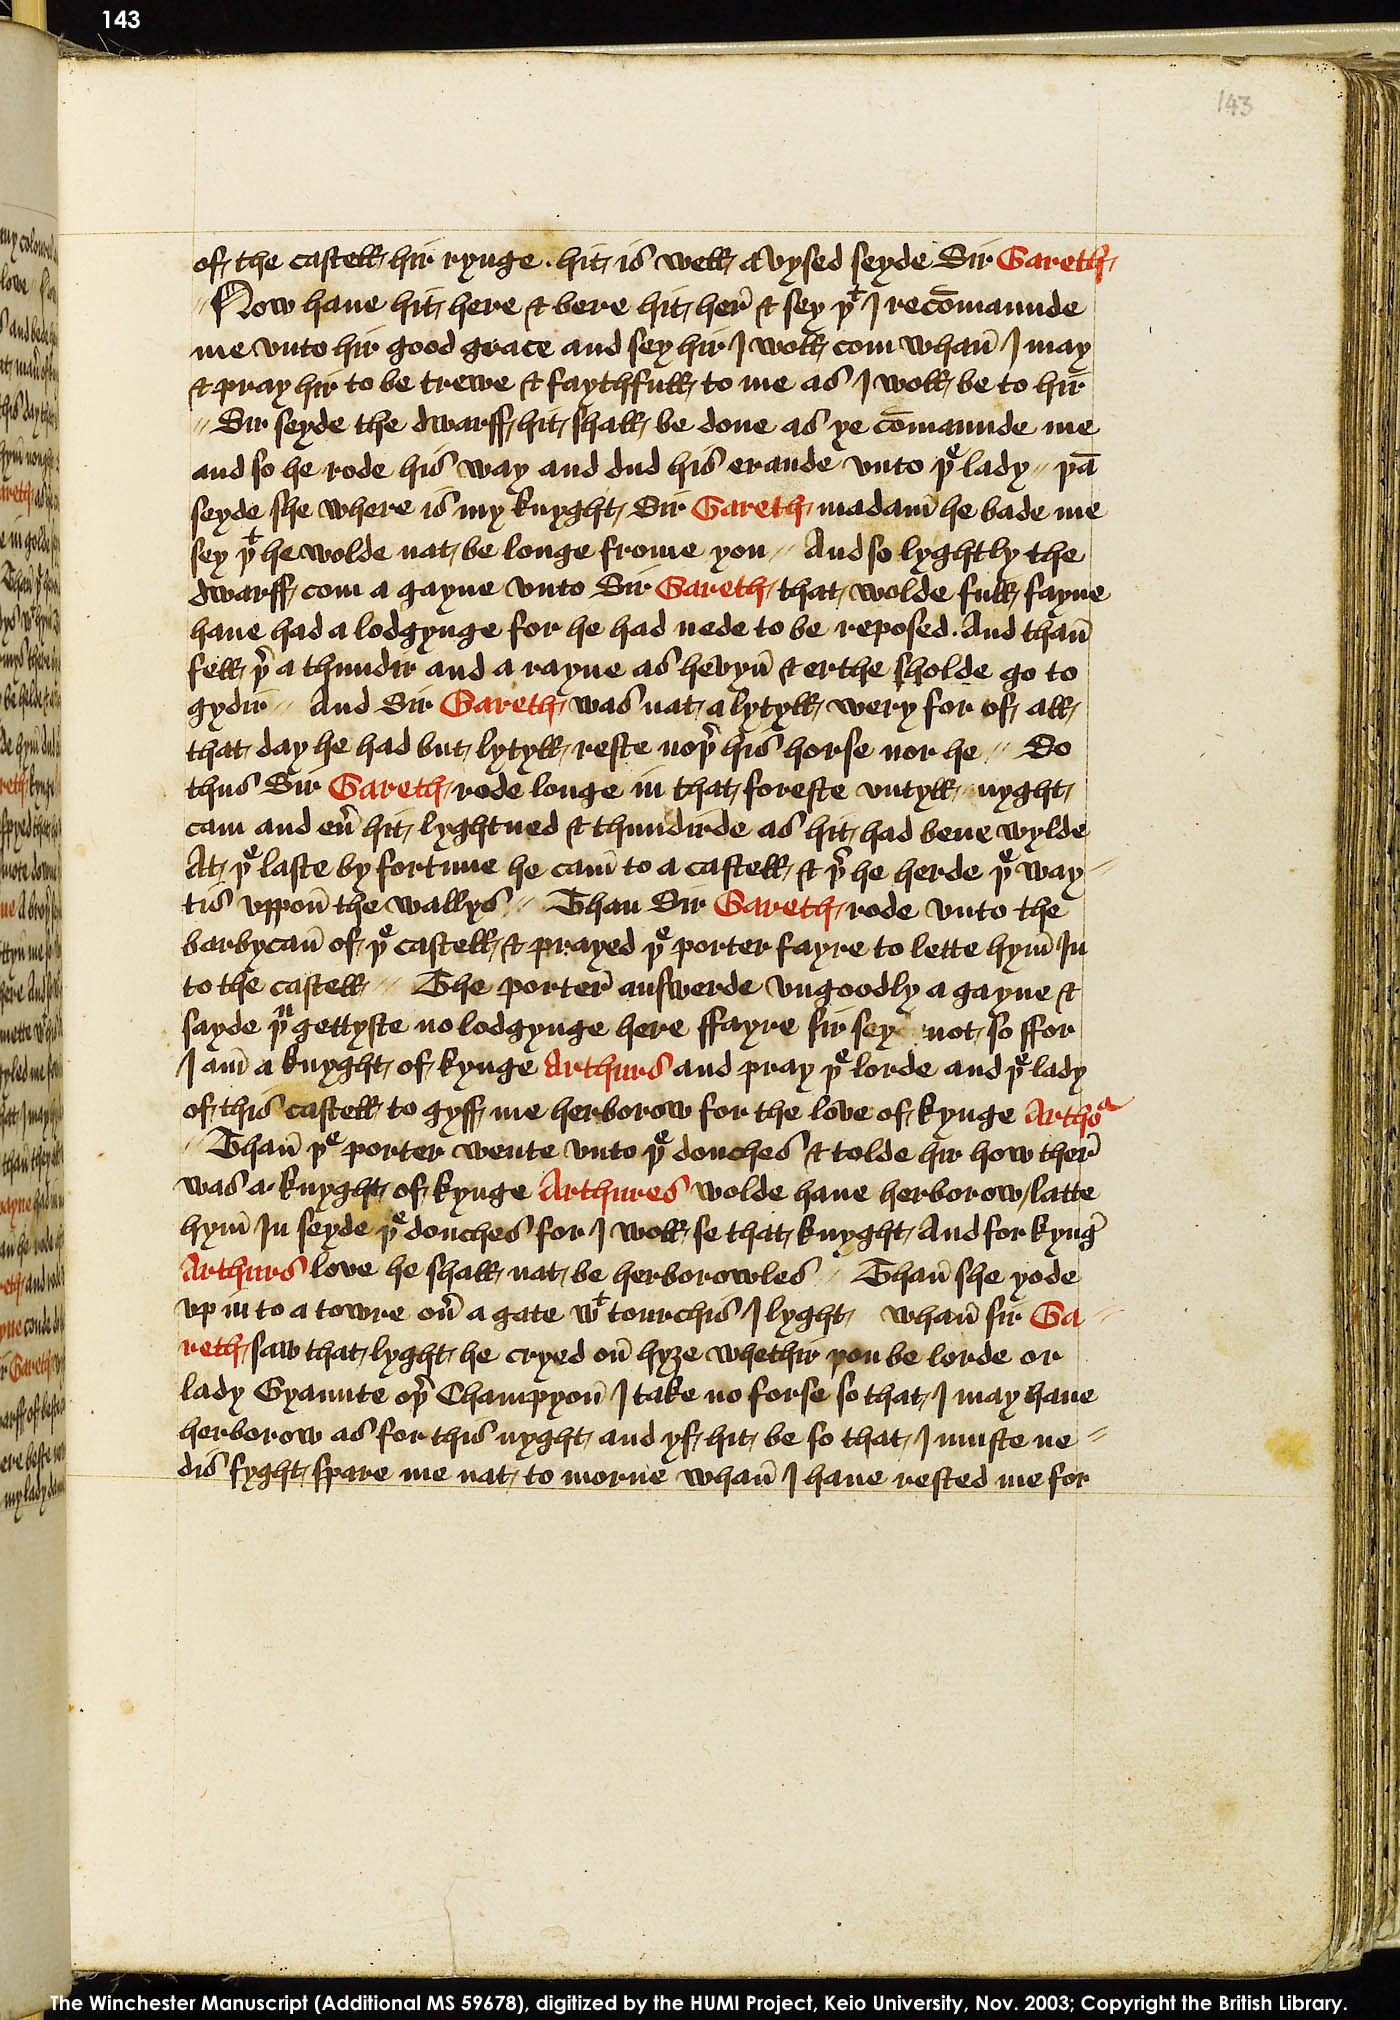 143
143
of the castell hir rynge . hit is well avysed seyde Sir Gareth
// Now haue hit here & bere hit her̄ & sey þᵗ I recōmaunde
me vnto hir good grace and sey hir I woll com whan̄ I may
& pray hir to be trewe & faythfull to me as I woll be to hir
// Sir seyde the dwarff hit shall be done as ye cōmaunde me
and so he rode his way and dud his erande vnto þᵉ lady // þā
seyde she where is my knyght Sir Gareth madam̄ he bade me
sey þᵗ he wolde nat be longe frome you // And so lyghtly the
dwarff com a gayne vnto Sir Gareth that wolde full fayne
haue had a lodgynge for he had nede to be reposed . And than̄
fell þ̉ a thundir and a rayne as hevyn̄ & erthe sholde go to
gydir // And Sir Gareth was nat a lytyll wery for of all
that day he had but lytyll reste noþ̉ his horse nor he // So
thus Sir Gareth rode longe in that foreste vntyll nyght
cam and eủ hit lyghtned & thundirde as hit had bene wylde
At þᵉ laste by fortune he cam̄ to a castell & þ̉ he herde þᵉ way //
tis vppon̄ the wallys // Than Sir Gareth rode vnto the
barbycan̄ of þᵉ castell & prayed þᵉ porter fayre to lette hym̄ In
to the castell // The porter̄ answerde vngoodly a gayne &
sayde þᵘ gettyste no lodgynge here ffayre sir sey not so ffor
I am̄ a knyght of kynge Arthurs and pray þᵉ lorde and þᵉ lady
of this castell to gyff me herborow for the love of kynge Arthᵃs
// Than̄ þᵉ porter wente vnto þᵉ douches & tolde hir how ther̄
was a knyght of kynge Arthures wolde haue herborow / latte
hym̄ In seyde þᵉ douches for I woll se that knyght And for kyng̉
Arthurs love he shall nat be herborowles // Than̄ she yode
vp in to a towre oủ a gate wᵗ tourchis I lyght whan̄ sir Ga //
reth saw that lyght he cryed on̄ hyȝe whethir you be lorde or
lady Gyaunte oþ̉ Champyon̄ I take no forse so that I may haue
herborow as for this nyght and yf hit be so that I muste ne //
dis fyght spare me nat to morne whan̄ I haue rested me for
The Winchester Manuscript (Additional MS 59678), digitized by the HUMI Project, Keio University, Nov. 2003; Copyright the British Library.